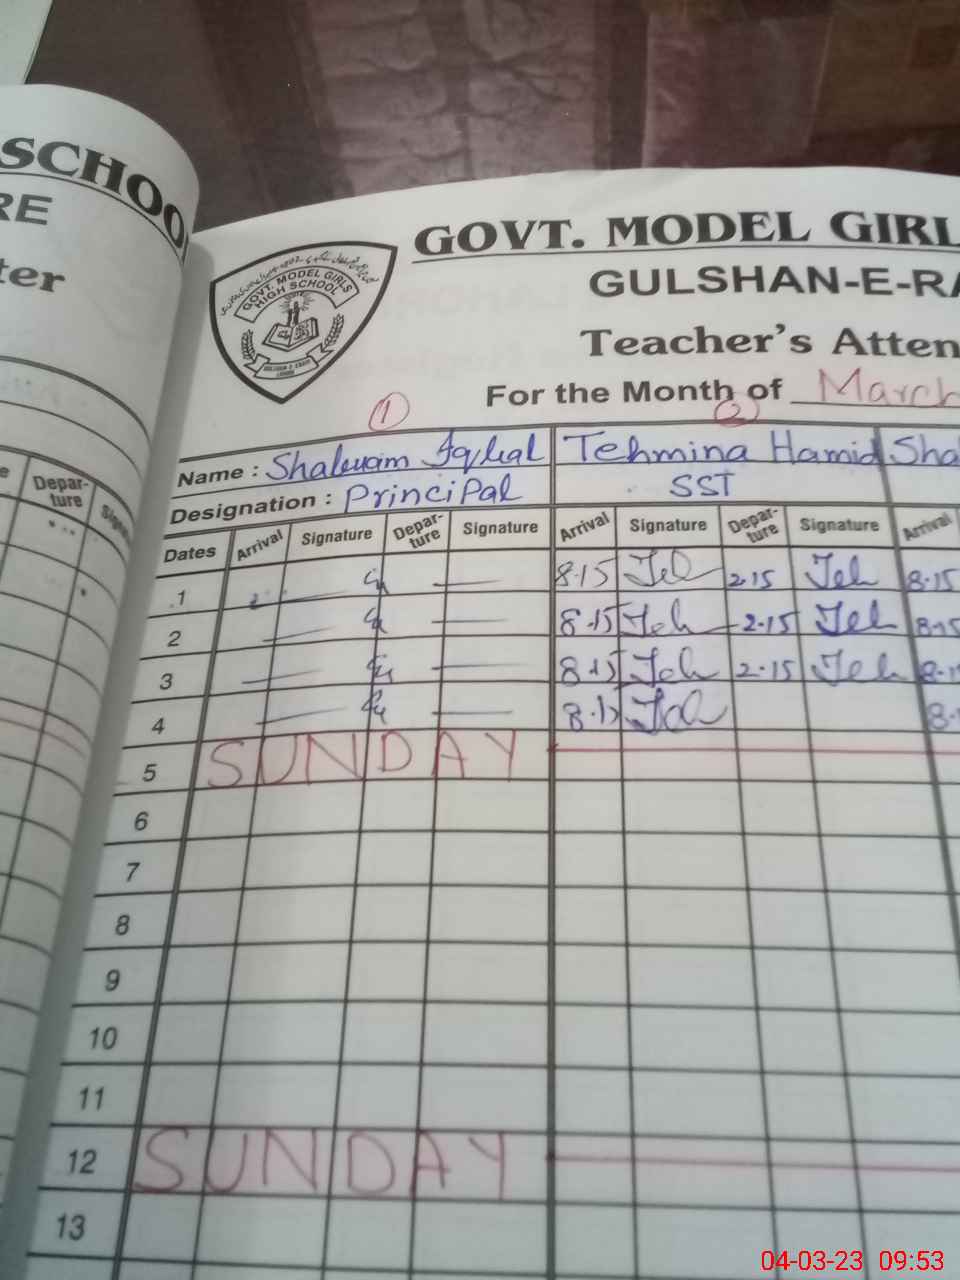 SCHOO
RE
ter
GOVT. MODEL GIRLS
HIGH SCHOOL
GOVT. MODEL GIRL
GULSHAN-E-RA
Teacher's Atten
For the Month of March
1 2
Name : Iqbal Tehmina Hamid Sha
Designation : Principal SST
Depar-ture
Dates Arrival Signature Depar-ture Signature Arrival Signature Depar-ture Signature Arrival
1 8.15 Teh 2.15 Teh 8.15
2 8.15 Teh 2.15 Teh 8.15
3 8.15 Teh 2.15 Teh 8.1
4 8.15 Teh 8.
5 SUNDAY
6
7
8
9
10
11
12 SUNDAY
13
04-03-23 09:53